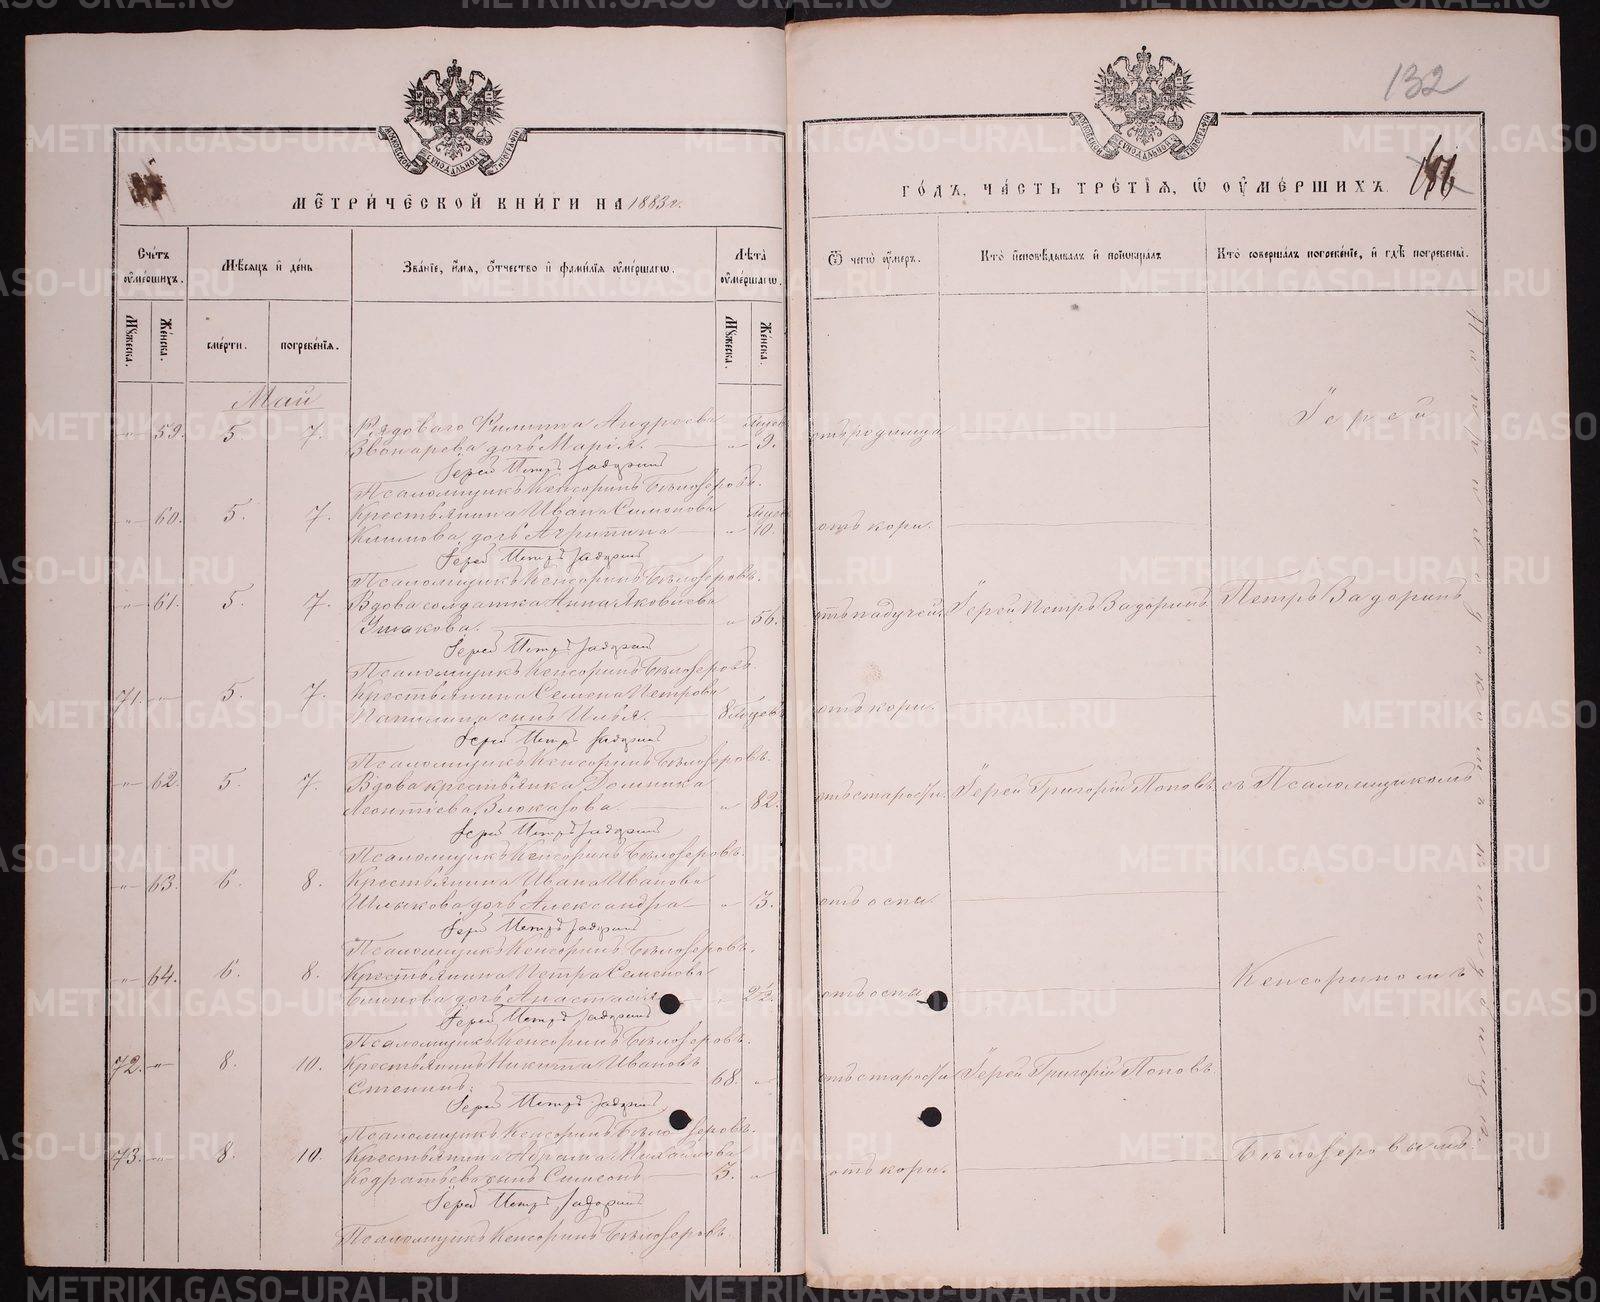 132
МЕТРИЧЕСКОЙ КНИГИ НА 1883 г.
ГОДЪ, ЧАСТЬ ТРЕТІЯ, Ѿ ОУМЕРШИХЪ.
Счетъ оумершихъ.
Мѣсяцъ и день
Званіе, имя, отчество и фамилія оумершагѡ.
Лѣта оумершагѡ.
Ѿ чегѡ оумеръ.
Кто исповѣдывалъ и пріобщалъ
Кто совершалъ погребеніе, и гдѣ погребены.
Мужеска.
Женска.
смерти.
погребенія.
Мужеска.
Женска.
Май
Рядоваго Филиппа Андреева
59. 5 7. Звонарева дочь Марія. 9. отъ родимца
Іерей Петръ Задоринъ
Псаломщикъ Кенсоринъ Бѣлозеровъ.
60. 5. 7. Крестьянина Ивана Симонова
Климова дочь Агрипина 10. отъ кори.
Іерей Петръ Задоринъ
Псаломщикъ Кенсоринъ Бѣлозеровъ.
61. 5. 7. Вдова солдатка Анна Яковлева
Ушакова. 56. отъ падучей Іерей Петръ Задоринъ
Іерей Петръ Задоринъ
Псаломщикъ Кенсоринъ Бѣлозеровъ.
71. 5. 7. Крестьянина Семена Петрова
сынъ Илья. 8 отъ кори.
Іерей Петръ Задоринъ
Псаломщикъ Кенсоринъ Бѣлозеровъ.
62. 5 7. Вдова крестьянка Домника
Леонтіева 82. отъ старости. Іерей Григорій Поповъ
Іерей Петръ Задоринъ
Псаломщикъ Кенсоринъ Бѣлозеровъ.
63. 6. 8. Крестьянина Ивана Иванова
Шлыкова дочь Александра 3. отъ оспы.
Іерей Петръ Задоринъ
Псаломщикъ Кенсоринъ Бѣлозеровъ.
64. 6. 8. Крестьянина Петра Семенова
дочь Анастасія 2½. отъ оспы
Іерей Петръ Задоринъ
Псаломщикъ Кенсоринъ Бѣлозеровъ.
72. 8. 10. Крестьянинъ Никита Ивановъ
Стенинъ. 68. отъ старости Іерей Григорій Поповъ
Іерей Петръ Задоринъ
Псаломщикъ Кенсоринъ Бѣлозеровъ.
73. 8. 10. Крестьянина Абрама Михайлова
Кодратьева сынъ Симеонъ 3. отъ кори.
Іерей Петръ Задоринъ
Псаломщикъ Кенсоринъ Бѣлозеровъ.
Іерей
Петръ Задоринъ
съ Псаломщикомъ
Кенсориномъ
Бѣлозеровымъ
METRIKI.GASO-URAL.RU